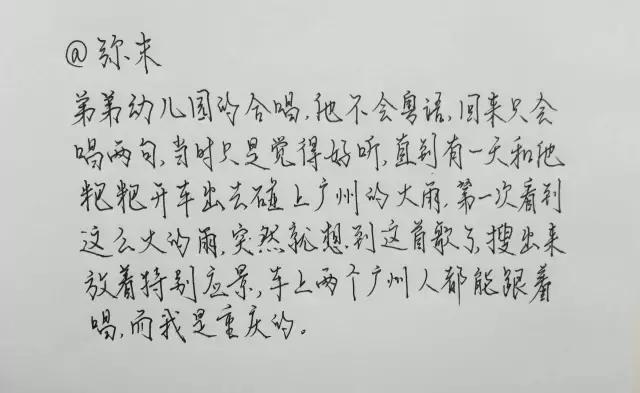 @弥末
弟弟幼儿园的合唱，他不会粤语，回来只会
唱两句，当时只是觉得好听，直到有一天和他
粑粑开车出去碰上广州的大雨，第一次看到
这么大的雨，突然就想到这首歌了，搜出来
放着特别应景，车上两个广州人都能跟着
唱，而我是重庆的。